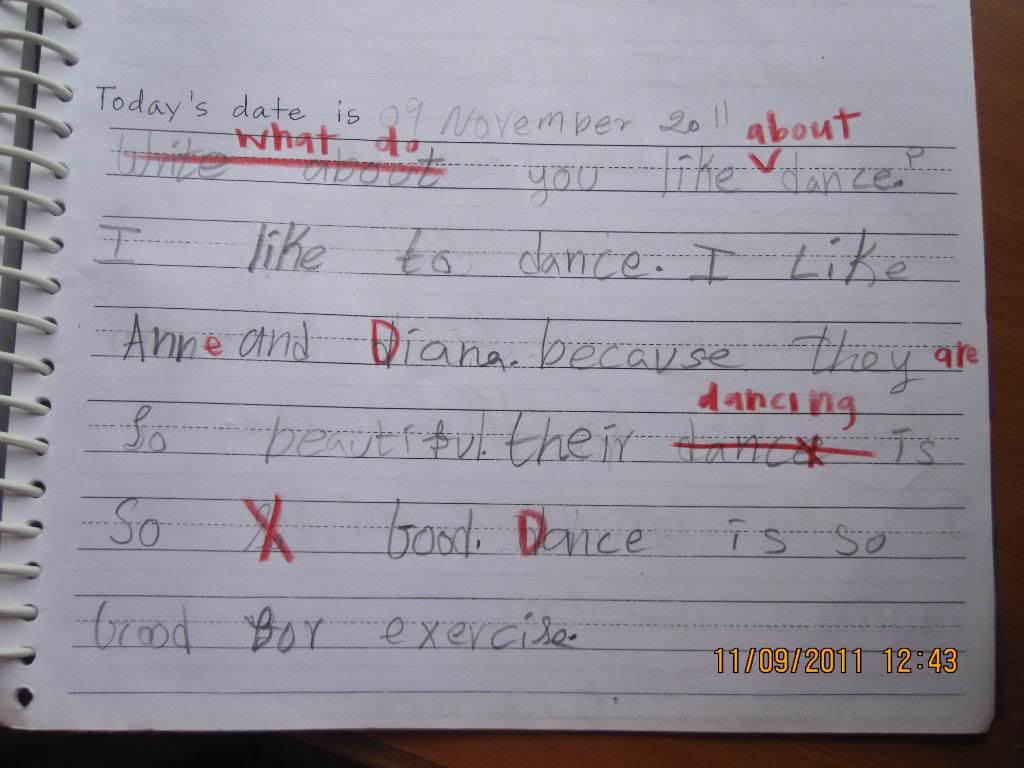 Today's date is 09 November 2011
what do about
Write about you like dance.?
I like to dance. I Like
Anne and Diana. because they are
dancing
So beautiful. their dance is
So Good. Dance is so
Good For exercise.
11/09/2011 12:43